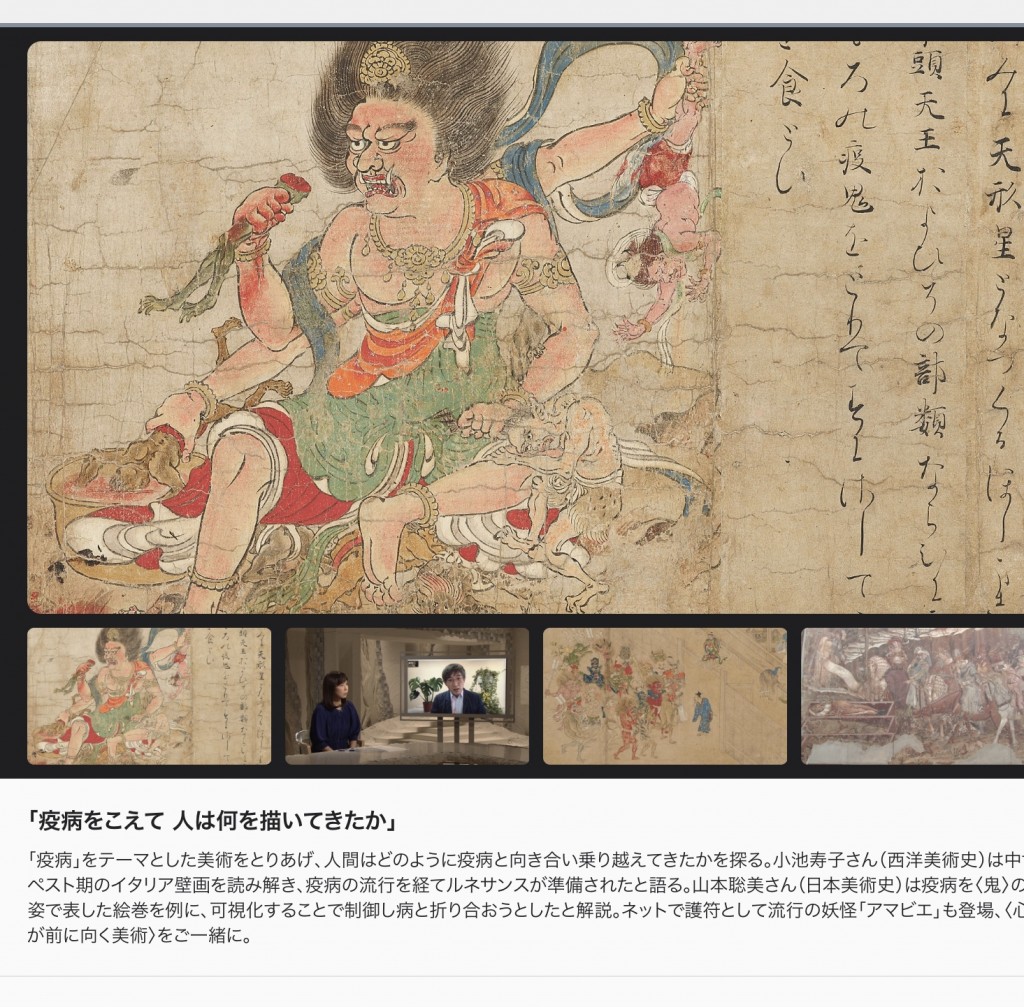 に天形星となつくるほし
頭天王およひその部類ならひに
ろの疫鬼をとりてすにさして
食
「疫病をこえて 人は何を描いてきたか」
「疫病」をテーマとした美術をとりあげ、人間はどのように疫病と向き合い乗り越えてきたかを探る。小池寿子さん（西洋美術史）は中
ペスト期のイタリア壁画を読み解き、疫病の流行を経てルネサンスが準備されたと語る。山本聡美さん（日本美術史）は疫病を〈鬼〉の
姿で表した絵巻を例に、可視化することで制御し病と折り合おうとしたと解説。ネットで護符として流行の妖怪「アマビエ」も登場、〈心
が前に向く美術〉をご一緒に。